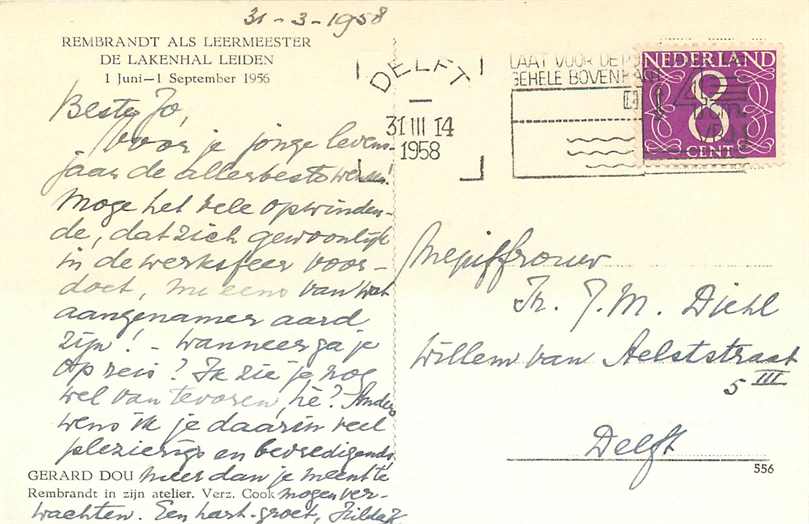 31-3-1958
REMBRANDT ALS LEERMEESTER
DE LAKENHAL LEIDEN
1 Juni—1 September 1956
Beste Jo,
Voor je jonge levens-
jaar de allerbeste wensen!
Moge het vele opwinden-
de, dat zich gewoonlijk
in de werksfeer voor-
doet, nu eens van wat
aangenamer aard
zijn! - Wanneer ga je
op reis? Ik zie je nog
wel van tevoren, hè? Anders
wens ik je daarin veel
plezierigs en bevredigends
meer dan je meent te
mogen ver-
wachten. Een hart. groet,
GERARD DOU
Rembrandt in zijn atelier. Verz. Cook
DELFT
31 III 14
1958
LAAT VOOR DE
GEHELE BOVENKA
NEDERLAND
8
CENT
Mejuffrouw
Th. J. M. Diehl
Willem van Aelststraat
5 III
Delft
556